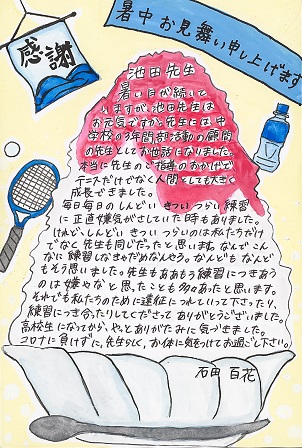 感謝
暑中お見舞い申し上げます
池田先生
暑い日が続いて
いますが、池田先生は
お元気ですか。先生には中
学校の3年間部活動の顧問
の先生としてお世話になりました。
本当に先生のご指導のおかげで
テニスだけでなく人間としても大きく
成長できました。
毎日毎日のしんどい きつい つらい練習
に正直嫌気がさしていた時もありました。
けれど、しんどい きつい つらいのは私たちだけ
でなく先生も同じだったと思います。なんでこん
なに練習しなきゃだめなんやろう。なんどもなんど
もそう思いました。先生もああもう練習につきあう
のは嫌やなと思ったことも多々あったと思います。
それでも私たちのために遠征につれていって下さったり、
練習につき合ったりしてくださって ありがとうございました。
高校生になってから、やっとありがたみに気づきました。
コロナに負けずに、先生らしく、お体に気をつけてお過ごし下さい。
石田 百花